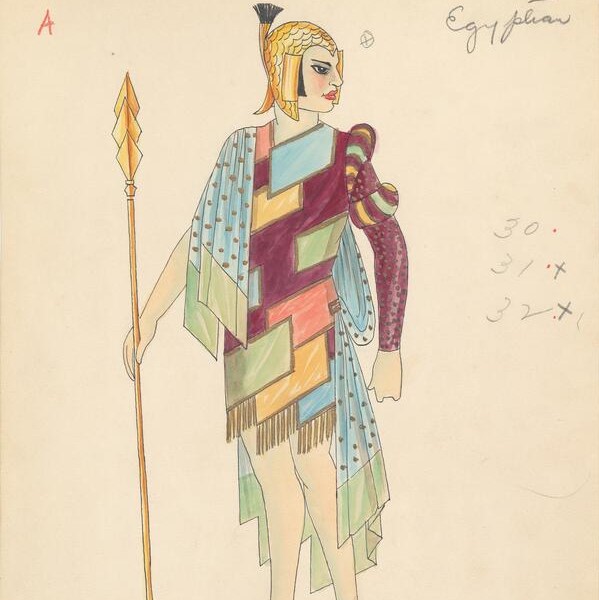 A
Egyptian
30.
31.x
32.x